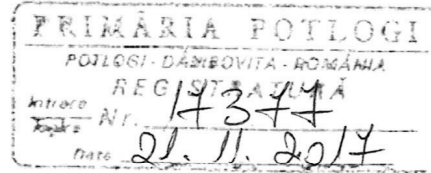 PRIMĂRIA POTLOGI
POTLOGI - DÂMBOVIŢA - ROMÂNIA
REGISTRATURĂ
Intrare
Nr. 17377
Data 21. 11. 2017